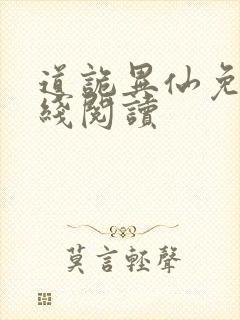 道詭異仙免
綫閱讀
莫言輕聲